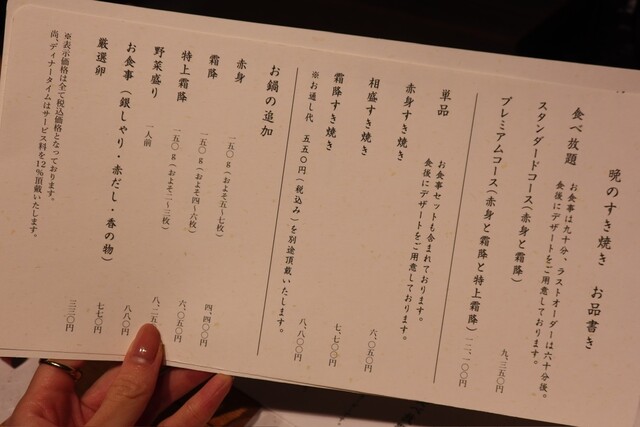 晩のすき焼き　お品書き
食べ放題
お食事は九十分、ラストオーダーは六十分後。
食後にデザートをご用意しております。
スタンダードコース（赤身と霜降） 九、三五〇円
プレミアムコース（赤身と霜降と特上霜降） 一二、一〇〇円
単品
お食事セットも含まれております。
食後にデザートをご用意しております。
赤身すき焼き 六、〇五〇円
相盛すき焼き 七、七〇〇円
霜降すき焼き 八、八〇〇円
※お通し代　五五〇円（税込み）を別途頂戴いたします。
お鍋の追加
赤身 一五〇g（およそ五～七枚） 四、四〇〇円
霜降 一五〇g（およそ四～六枚） 六、〇五〇円
特上霜降 一五〇g（およそ二～三枚） 八、二五
野菜盛り 一人前
お食事（銀しゃり・赤だし・香の物） 八八〇円
厳選卵 七七〇円
三三〇円
※表示価格は全て税込価格となっております。
尚、ディナータイムはサービス料を12%頂戴いたします。